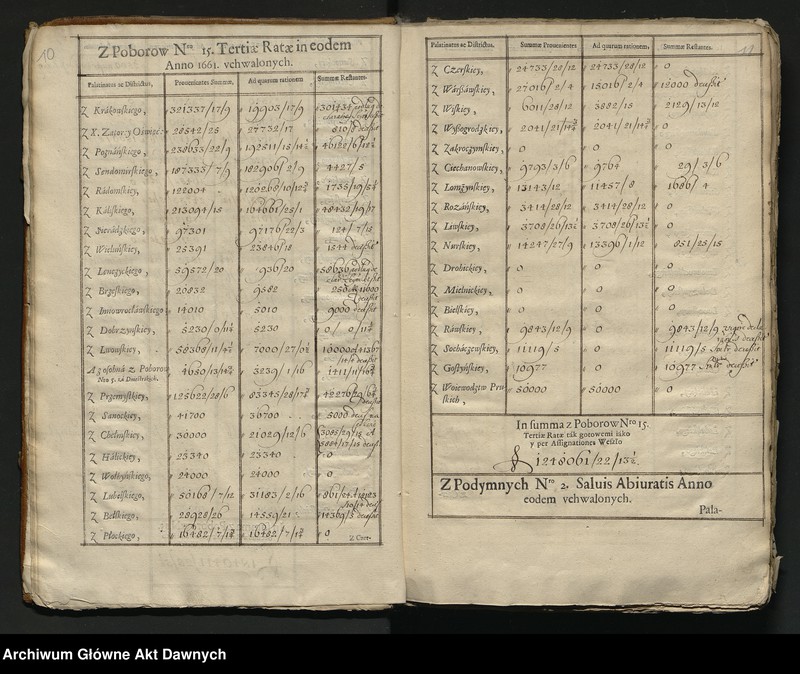 10
Z Poborow Nro 15. Tertiæ Ratæ in eodem
Anno 1661. vchwalonych.
Palatinatus ac Districtus, Prouenientes Summæ, Ad quarum rationem Summæ Restantes.
Z Krákowskiego, 321337/17/9 19903/17/9 301434
Z X. Zator: y Oświęc: 28542/25 27732/17 810/8
Z Poznáńskiego, 238633/22/9 46122/6/12
Z Sendomirskiego, 187333/7/9 182906/2/9 4427/5
Z Rádomskiey, 122004
Z Káliskiego, 213094/18 164661/25/1 48432/19/17
Z Sierádzkiego, 97301 97176/22/3 124/7/15
Z Wieluńskiey, 25391 23846/18 1544
Z Lenczyckiego, 59572/20 936/20 58636
Z Brzeskiego, 20832 9582
Z Innowrocłáwskiego 14010 5010 9000
Z Dobrzyńskiey, 5230/0/11½ 5230 0/0/11½
Z Lwowskiey, 58368/11/4½ 7000/27/0½
A z osobná z Poborow
Nro 5. za Dniestrskich. 4650/13/14½ 3239/1/16 1411/11/16½
Z Przemyskiey, 125622/28/6 83345/28/17½
Z Sanockiey, 41700 36700 5000
Z Chełmskiey, 30000 21029/12/6
Z Hálickiey, 23340 23340 0
Z Wołhyńskiego, 24000 24000 0
Z Lubelskiego, 50168/7/12 31183/2/16
Z Bełskiego, 28928/26 14559/21 14369/5
Z Płockiego, 16482/7/1½ 16482/7/1½ 0
Z Czer-
11
Palatinatus ac Districtus, Summæ Prouenientes Ad quarum rationem, Summæ Restantes.
Z Czerskiey, 24733/28/12 24733/28/12 0
Z Wárszáwskiey, 27016/2/4 15016/2/4 12000
Z Wiskiey, 6011/28/12 3882/15 2129/13/12
Z Wyszogrodzkiey, 2041/21/14½ 2041/21/14½ 0
Z Zakroczymskiey, 0 0 0
Z Ciechanowskiey, 9793/3/6 9764 29/3/6
Z Łomżyńskiey, 13143/12 11457/8 1686/4
Z Rozáńskiey, 3414/28/12 3414/28/12 0
Z Liwskiey, 3708/26/13½ 3708/26/13½ 0
Z Nurskiey, 14247/27/9 13396/1/12 851/25/15
Z Drohickiey, 0 0 0
Z Mielnickiey, 0 0 0
Z Bielskiey, 0 0 0
Z Ráwskiey, 9843/12/9 0 9843/12/9
Z Socháczewskiey, 11119/5 0 11119/5
Z Gostyńskiey, 10977 0 10977
Z Woiewodztw Pru-
skich, 50000 50000 0
In summa z Poborow Nro 15.
Tertiæ Ratæ ták gotowemi iáko
y per Assignationes Weszło
1248061/22/13½
Z Podymnych Nro 2. Saluis Abiuratis Anno
eodem vchwalonych.
Pala-
Archiwum Główne Akt Dawnych